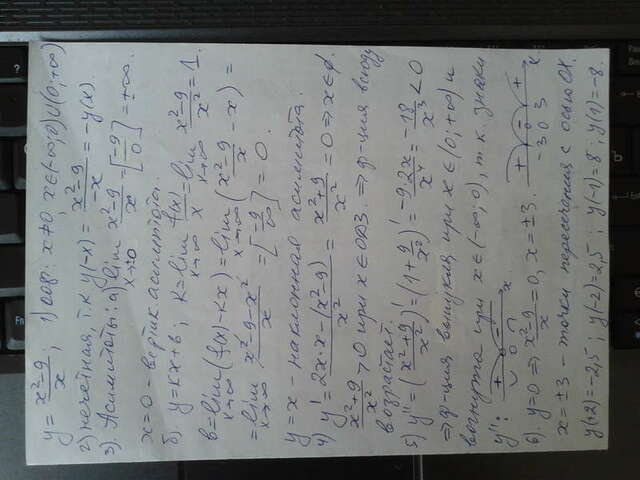 y = x²-9/x ; 1) одз: x≠0, x∈(-∞;0)∪(0;+∞)
2) нечетная, т.к. y(-x) = x²-9/-x = -y(x).
3). Асимптоты: а) lim x→0 x²-9/x = [-9/0] = +∞.
x=0 - вертик. асимптота.
б). y=kx+b; k=lim x→∞ f(x)/x = lim x→∞ x²-9/x² = 1.
b=lim x→∞ (f(x)-kx) = lim x→∞ (x²-9/x - x) =
= lim x→∞ x²-9-x²/x = [-9/∞] = 0.
y=x - наклонная асимптота.
4) y' = 2x·x-(x²-9)/x² = x²+9/x² = 0 ⇒ x∈∅.
x²+9/x² > 0 при x∈ОДЗ. ⇒ ф-ция всюду
возрастает.
5) y'' = (x²+9/x²)' = (1+9/x²)' = -9·2x/x⁴ = -18/x³ < 0
⇒ ф-ция выпуклая при x∈(0;+∞) и
вогнута при x∈(-∞;0), т.к. знаки
y'': + 0 - x
6). y=0 ⇒ x²-9/x = 0, x=±3. + - + -3 0 3 x
x=±3 - точки пересечения с осью OX.
y(+2)=-2,5; y(-2)=2,5; y(-1)=8; y(1)=-8.